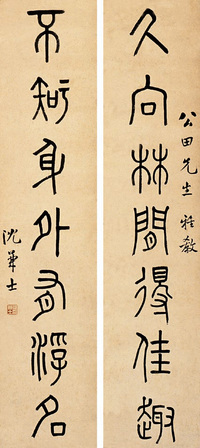 公田先生雅教
久向林間得佳趣
不知身外有浮名
沈華士